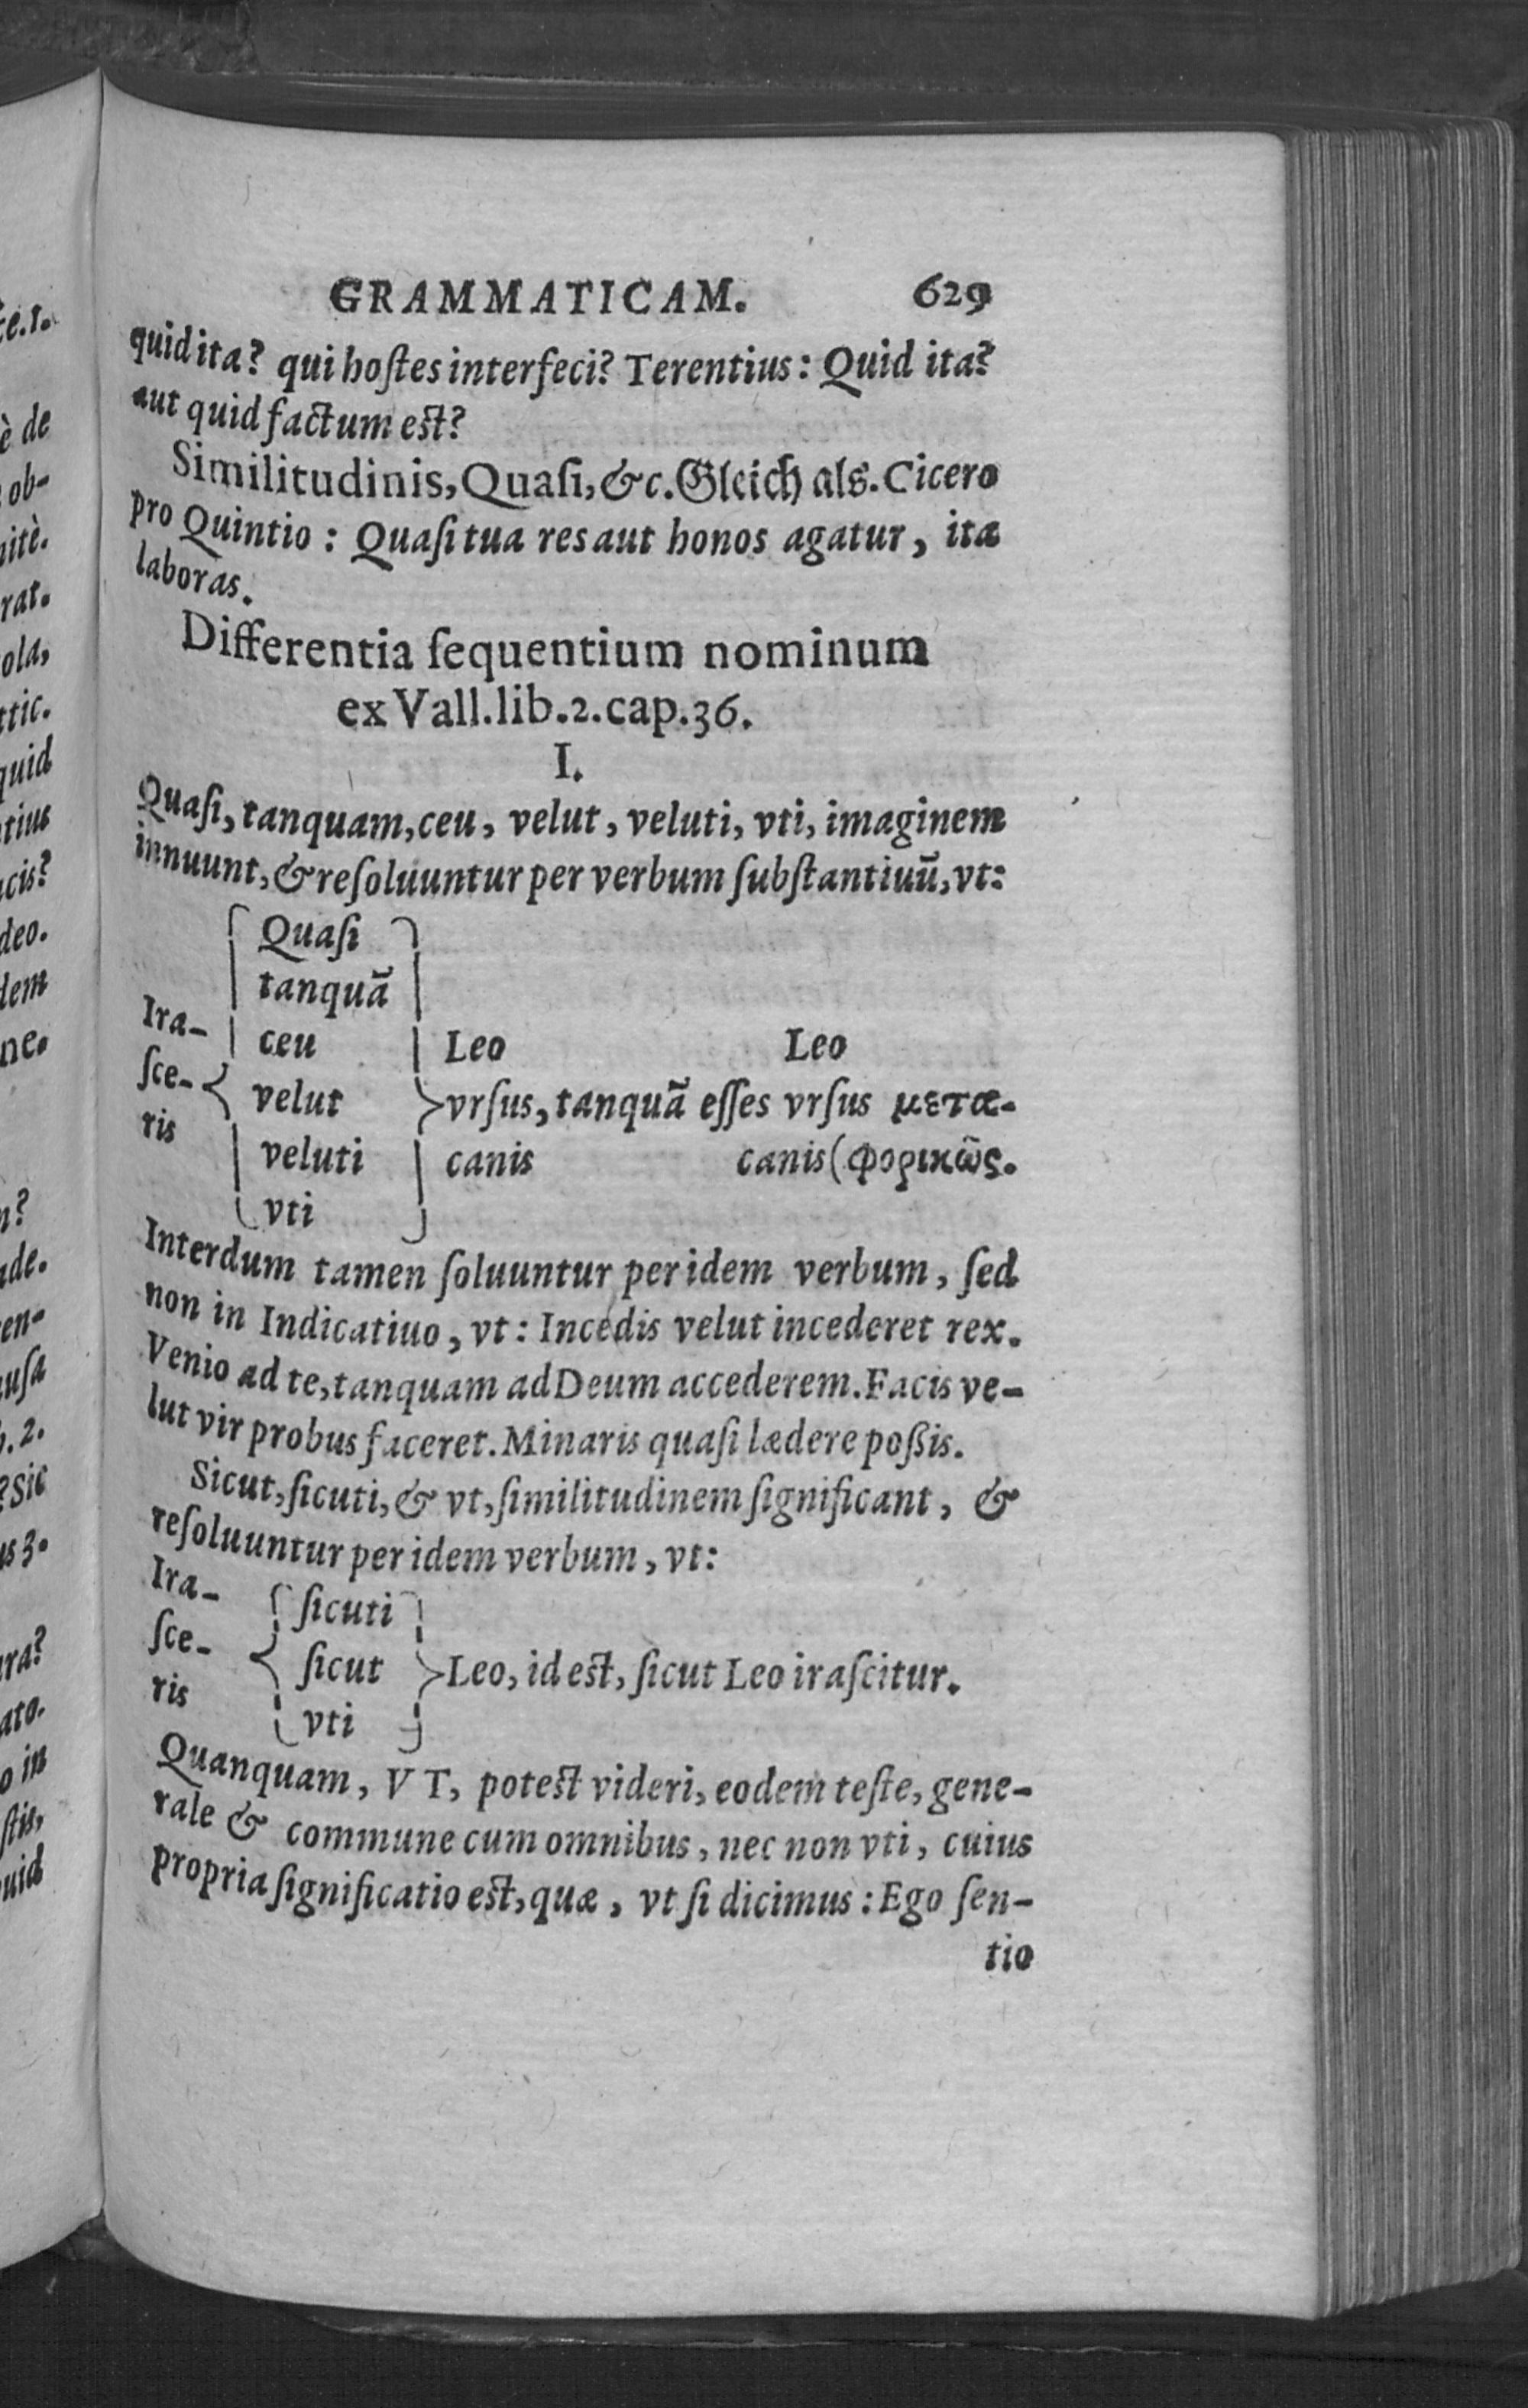 GRAMMATICAM. 629
quid ita? qui hoſtes interfeci? Terentius: Quid ita?
aut quid factum est?
Similitudinis, Quaſi, &c. Gleich als. Cicero
pro Quintio: Quaſi tua res aut honos agatur, ita
laboras.
Differentia ſequentium nominum
ex Vall. lib. 2. cap. 36.
I.
Quaſi, tanquam, ceu, velut, veluti, vti, imaginem
innuunt, & reſoluuntur per verbum ſubſtantiuū, vt:
Quaſi
tanquā
Ira- ceu Leo Leo
ſce- velut vrſus, tanquā eſſes vrſus μετα-
ris veluti canis canis (φορικῶς.
vti
Interdum tamen ſoluuntur per idem verbum, ſed
non in Indicatiuo, vt: Incedis velut incederet rex.
Venio ad te, tanquam ad Deum accederem. Facis ve-
lut vir probus faceret. Minaris quaſi lædere poßis.
Sicut, ſicuti, & vt, ſimilitudinem ſignificant, &
reſoluuntur per idem verbum, vt:
Ira- ſicuti
ſce- ſicut Leo, id est, ſicut Leo iraſcitur.
ris vti
Quanquam, VT, potest videri, eodem teſte, gene-
rale & commune cum omnibus, nec non vti, cuius
propria ſignificatio est, quæ, vt ſi dicimus: Ego ſen-
tio